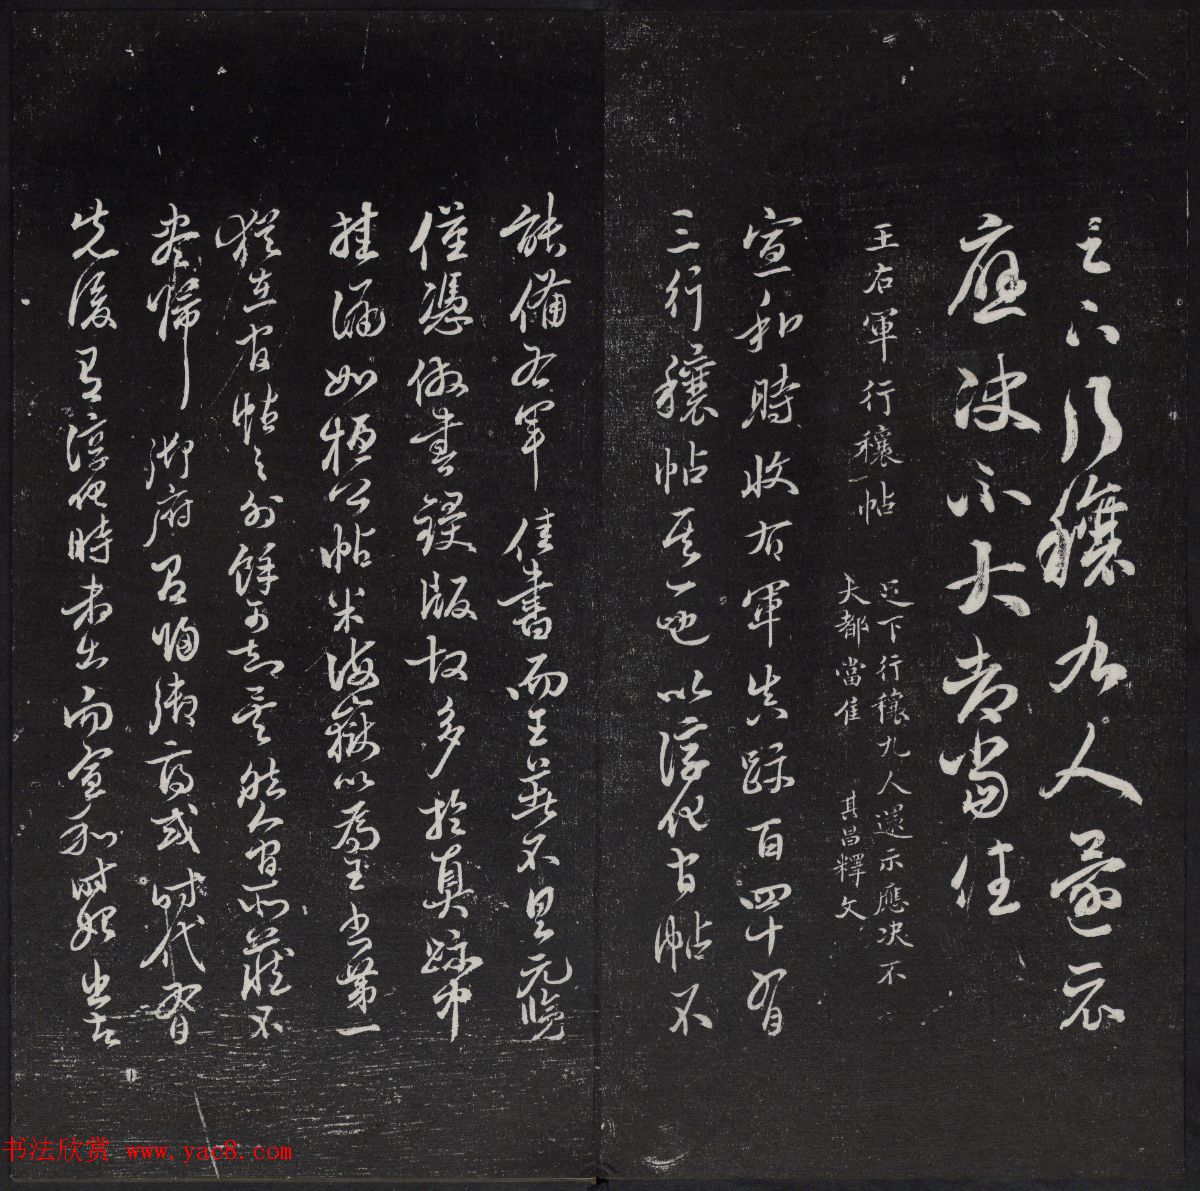 足下行穰九人還示
應決不大都當佳
王右軍行穰帖
足下行穰九人還示應决不
大都當佳 其昌釋文
宣和時收右軍真跡百四十有
三行穰帖其一也以淳化官帖不
能備右軍佳書而王著不具元覽
僅憑倣書鋟版故多於真跡中
挂漏如桓公帖米海嶽以為王書第一
猶在官帖之外餘可知矣然人間所藏不
盡歸御府即歸御府或時代有
先後有淳化時未出而宣和時始出者
书法欣赏 www.yac8.com